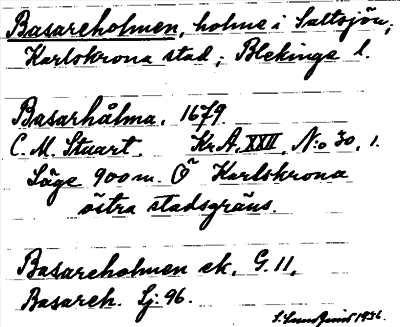 Basareholmen, holme i Saltsjön;
Karlskrona stad; Blekinge l.
Basarhålma, 1679.
C. M. Stuart. Kr.A. XXII, N:o 30, 1.
Läge 900m. Ö Karlskrona
östra stadsgräns.
Basareholmen ek. G. 11,
Basareh. Sj. 96.
1936.